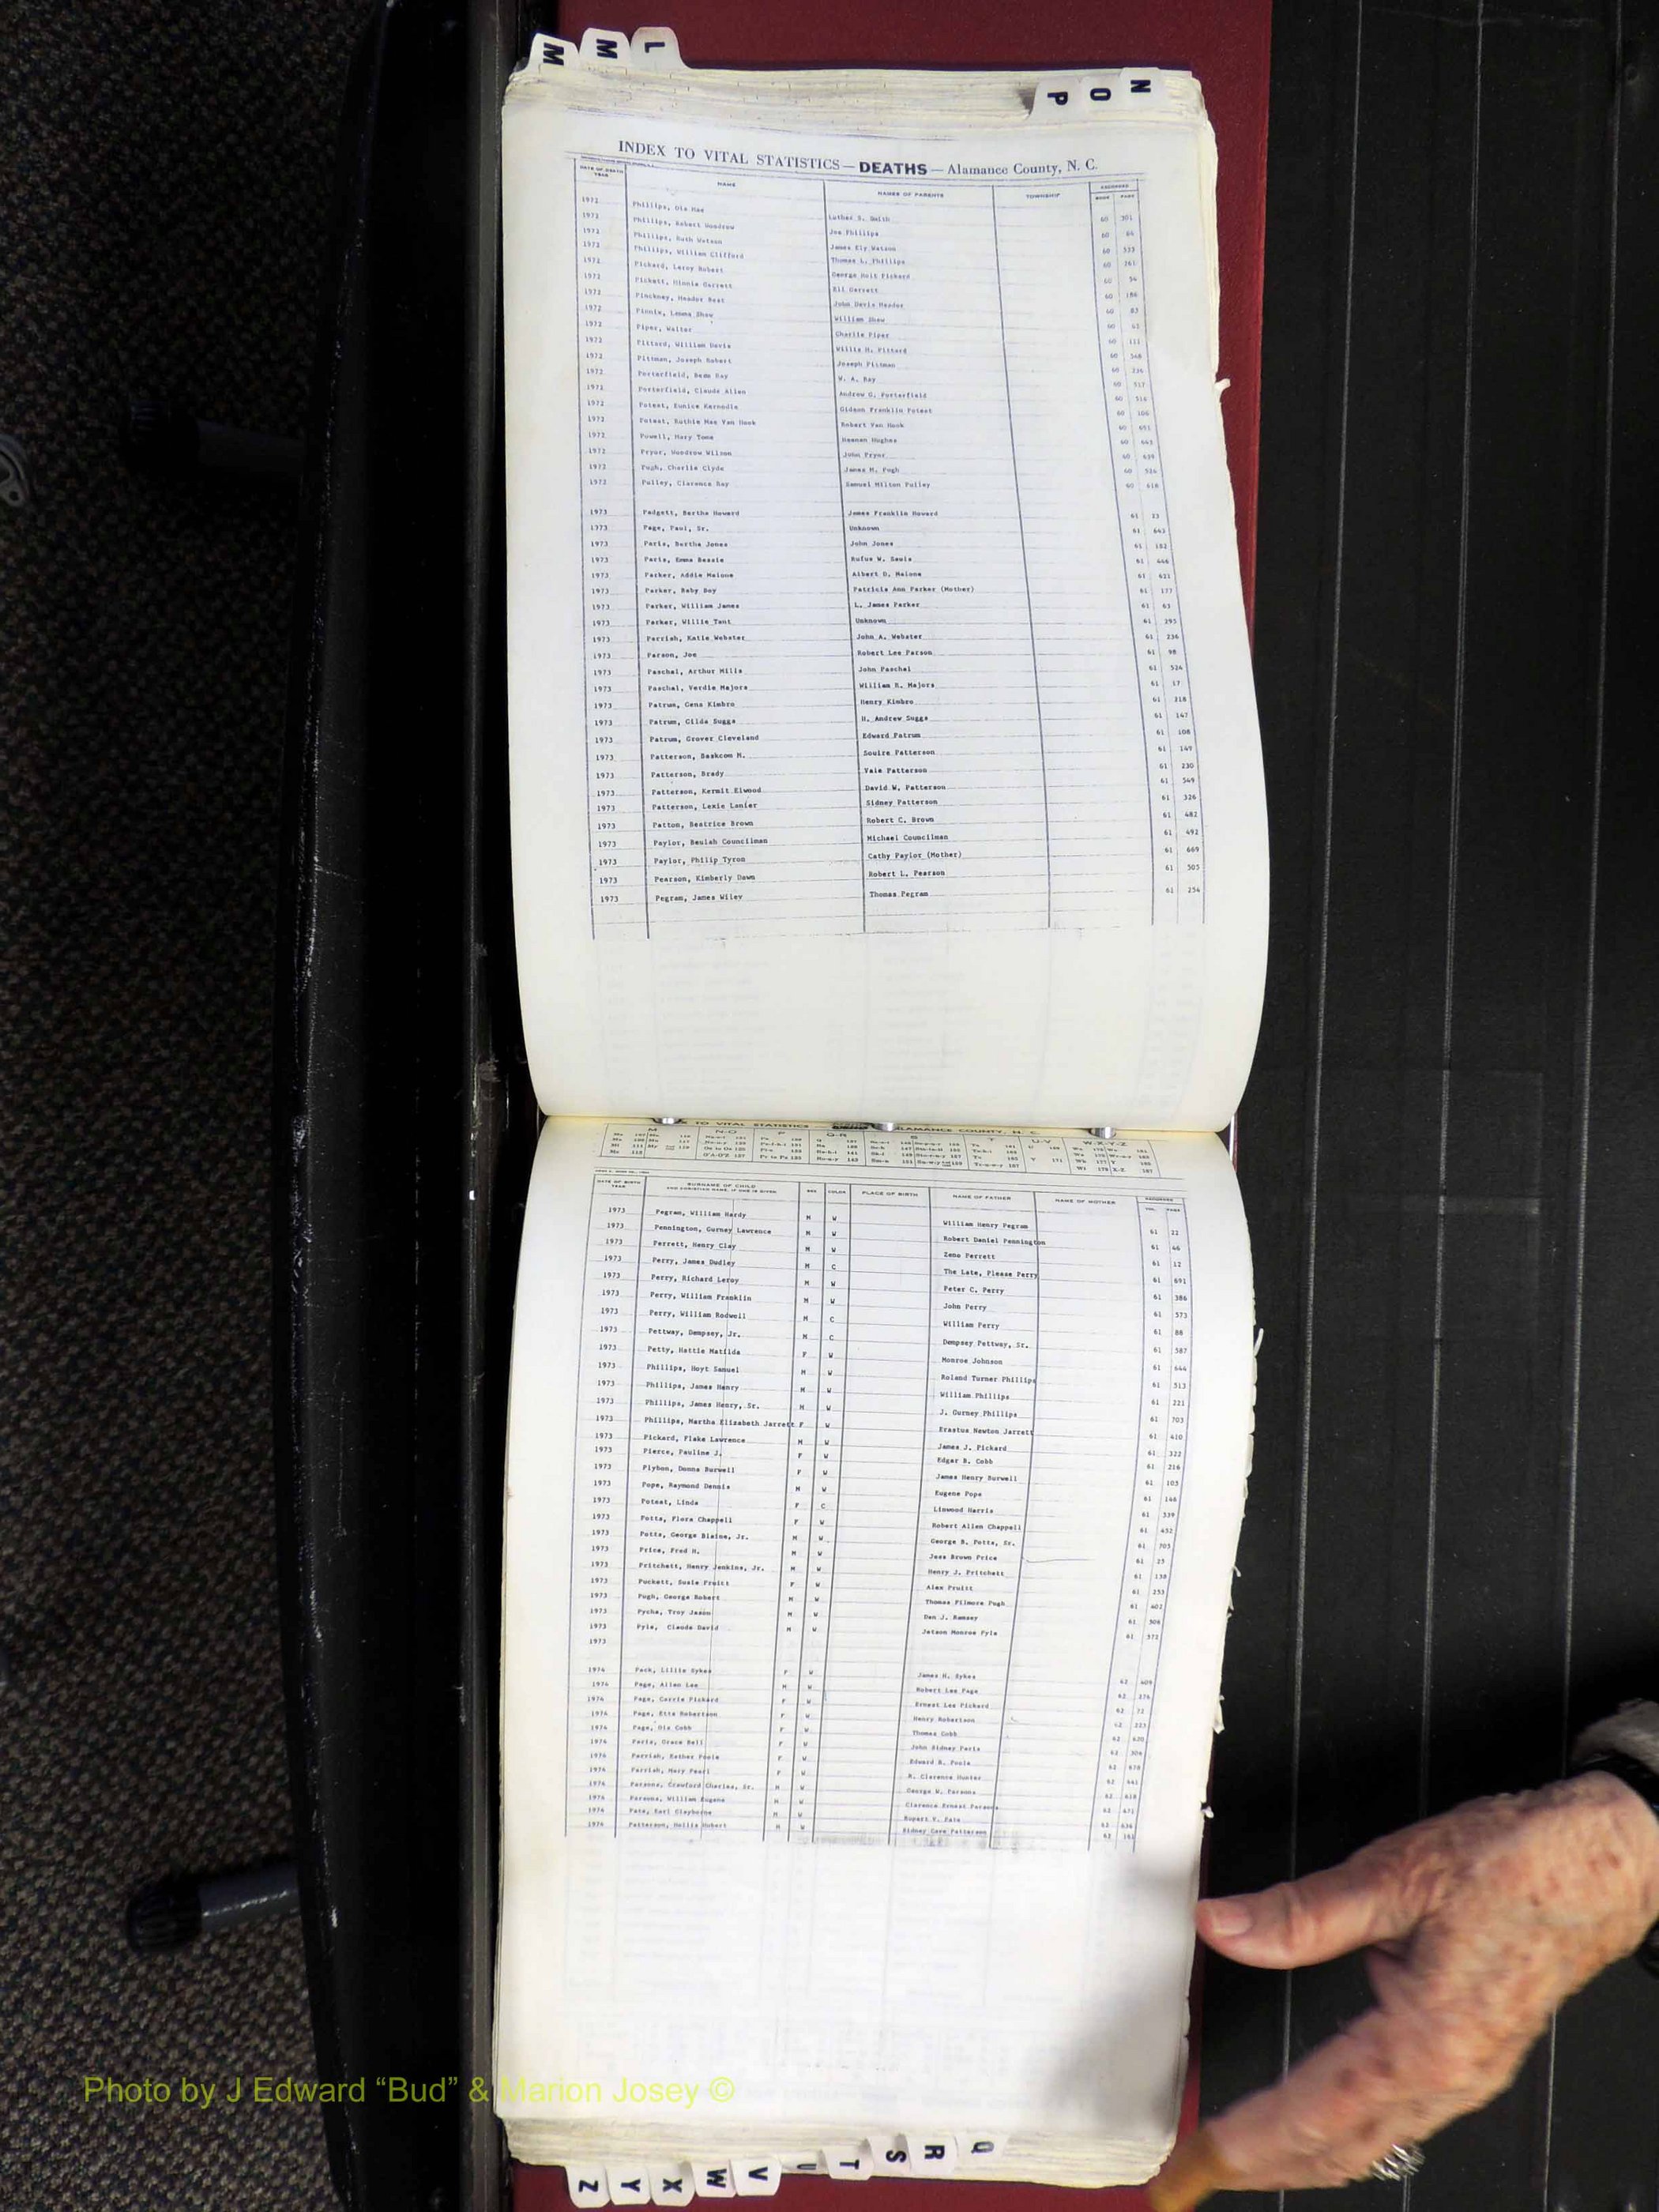 L
M
M
N
O
P
INDEX TO VITAL STATISTICS — DEATHS — Alamance County, N. C.
DATE OF DEATH YEAR NAME NAMES OF PARENTS TOWNSHIP RECORDED BOOK PAGE
1972 Phillips, Ola Mae Luther S. Smith 60 301
1972 Phillips, Robert Woodrow Joe Phillips 60 64
1972 Phillips, Ruth Watson James Ely Watson 60 533
1972 Phillips, William Clifford Thomas L. Phillips 60 261
1972 Pickard, Leroy Robert George Holt Pickard 60 54
1972 Pickett, Minnie Garrett Eli Garrett 60 186
1972 Pinckney, Meador Best John Davis Meador 60 83
1972 Pinnix, Lemma Shaw William Shaw 60
1972 Piper, Walter Charlie Piper 60 111
1972 Pittard, William Davis Willie H. Pittard 60 548
1972 Pittman, Joseph Robert Joseph Pittman 60
1972 Porterfield, Bess Ray W. A. Ray 60 517
1972 Porterfield, Claude Allen Andrew G. Porterfield 60
1972 Poteat, Eunice Kernodle Gideon Franklin Poteat 60 106
1972 Poteat, Ruthie Mae Van Hook Robert Van Hook 60 651
1972 Powell, Mary Tome Heenan Hughes 60 643
1972 Pryor, Woodrow Wilson John Pryor 60 639
1972 Pugh, Charlie Clyde James M. Pugh 60 524
1972 Pulley, Clarence Ray Samuel Milton Pulley 60 618
1973 Padgett, Bertha Howard James Franklin Howard 61 23
1973 Page, Paul, Sr. Unknown 61 643
1973 Paris, Bertha Jones John Jones 61 182
1973 Paris, Emma Bessie Rufus W. Sauls 61 446
1973 Parker, Addie Malone Albert D. Malone 61 621
1973 Parker, Baby Boy Patricia Ann Parker (Mother) 61 177
1973 Parker, William James L. James Parker 61 63
1973 Parker, Willie Tant Unknown 61 295
1973 Parrish, Katie Webster John A. Webster 61 236
1973 Parson, Joe Robert Lee Parson 61 98
1973 Paschal, Arthur Mills John Paschal 61 524
1973 Paschal, Verdie Majors William R. Majors 61 17
1973 Patrum, Gena Kimbro Henry Kimbro 61 218
1973 Patrum, Gilda Suggs H. Andrew Suggs 61 147
1973 Patrum, Grover Cleveland Edward Patrum 61 108
1973 Patterson, Baskcom M. Souire Patterson 61 149
1973 Patterson, Brady Vaie Patterson 61 230
1973 Patterson, Kermit Elwood David W. Patterson 61 549
1973 Patterson, Lexie Lanier Sidney Patterson 61 326
1973 Patton, Beatrice Brown Robert C. Brown 61 482
1973 Paylor, Beulah Councilman Michael Councilman 61 492
1973 Paylor, Philip Tyron Cathy Paylor (Mother) 61 669
1973 Pearson, Kimberly Dawn Robert L. Pearson 61 505
1973 Pegram, James Wiley Thomas Pegram 61 254
TO VITAL STATISTICS ALAMANCE COUNTY, N. C.
M N-O P Q-R S T U-V W-X-Y-Z
DATE OF BIRTH YEAR SURNAME OF CHILD AND CHRISTIAN NAME, IF ONE IS GIVEN SEX COLOR PLACE OF BIRTH NAME OF FATHER NAME OF MOTHER RECORDED VOL. PAGE
1973 Pegram, William Hardy M W William Henry Pegram 61 22
1973 Pennington, Gurney Lawrence M W Robert Daniel Pennington 61 46
1973 Perrett, Henry Clay M W Zeno Perrett 61 12
1973 Perry, James Dudley M C The Late, Please Perry 61 691
1973 Perry, Richard Leroy M W Peter C. Perry 61 386
1973 Perry, William Franklin M W John Perry 61 573
1973 Perry, William Rodwell M C William Perry 61 88
1973 Pettway, Dempsey, Jr. M C Dempsey Pettway, Sr. 61 587
1973 Petty, Hattie Matilda F W Monroe Johnson 61 644
1973 Phillips, Hoyt Samuel M W Roland Turner Phillips 61 513
1973 Phillips, James Henry M W William Phillips 61 221
1973 Phillips, James Henry, Sr. M W J. Gurney Phillips 61 703
1973 Phillips, Martha Elizabeth Jarrett F W Erastus Newton Jarrett 61 410
1973 Pickard, Flake Lawrence M W James J. Pickard 61 322
1973 Pierce, Pauline J. F W Edgar B. Cobb 61 216
1973 Plybon, Donna Burwell F W James Henry Burwell 61 105
1973 Pope, Raymond Dennis M W Eugene Pope 61 146
1973 Poteat, Linda F C Linwood Harris 61 339
1973 Potts, Flora Chappell F W Robert Allen Chappell 61 432
1973 Potts, George Blaine, Jr. M W George B. Potts, Sr. 61 705
1973 Price, Fred H. M W Jess Brown Price 61 25
1973 Pritchett, Henry Jenkins, Jr. M W Henry J. Pritchett 61 138
1973 Puckett, Susie Pruitt F W Alex Pruitt 61 253
1973 Pugh, George Robert M W Thomas Filmore Pugh 61 402
1973 Pycha, Troy Jason M W Dan J. Ramsey 61 306
1973 Pyle, Claude David M W Jetson Monroe Pyle 61 372
1973
1974 Pack, Lillie Sykes F W James H. Sykes 62 409
1974 Page, Allen Lee M W Robert Lee Page 62 276
1974 Page, Carrie Pickard F W Ernest Lee Pickard 62 72
1974 Page, Etta Robertson F W Henry Robertson 62 223
1974 Page, Ola Cobb F W Thomas Cobb 62 620
1974 Paris, Grace Bell F W John Sidney Paris 62 304
1974 Parrish, Esther Poole F W Edward R. Poole 62 678
1974 Parrish, Mary Pearl F W R. Clarence Hunter 62
1974 Parsons, Crawford Charles, Sr. M W George W. Parsons 62 618
1974 Parsons, William Eugene M W Clarence Ernest Parsons 62 471
1974 Pate, Earl Clayborne M W Rupert V. Pate 62 636
1974 Patterson, Hollis Hubert M W Sidney Cave Patterson 62 161
Photo by J Edward “Bud” & Marion Josey ©
Q
R
S
T
U
V
W
X
Y
Z